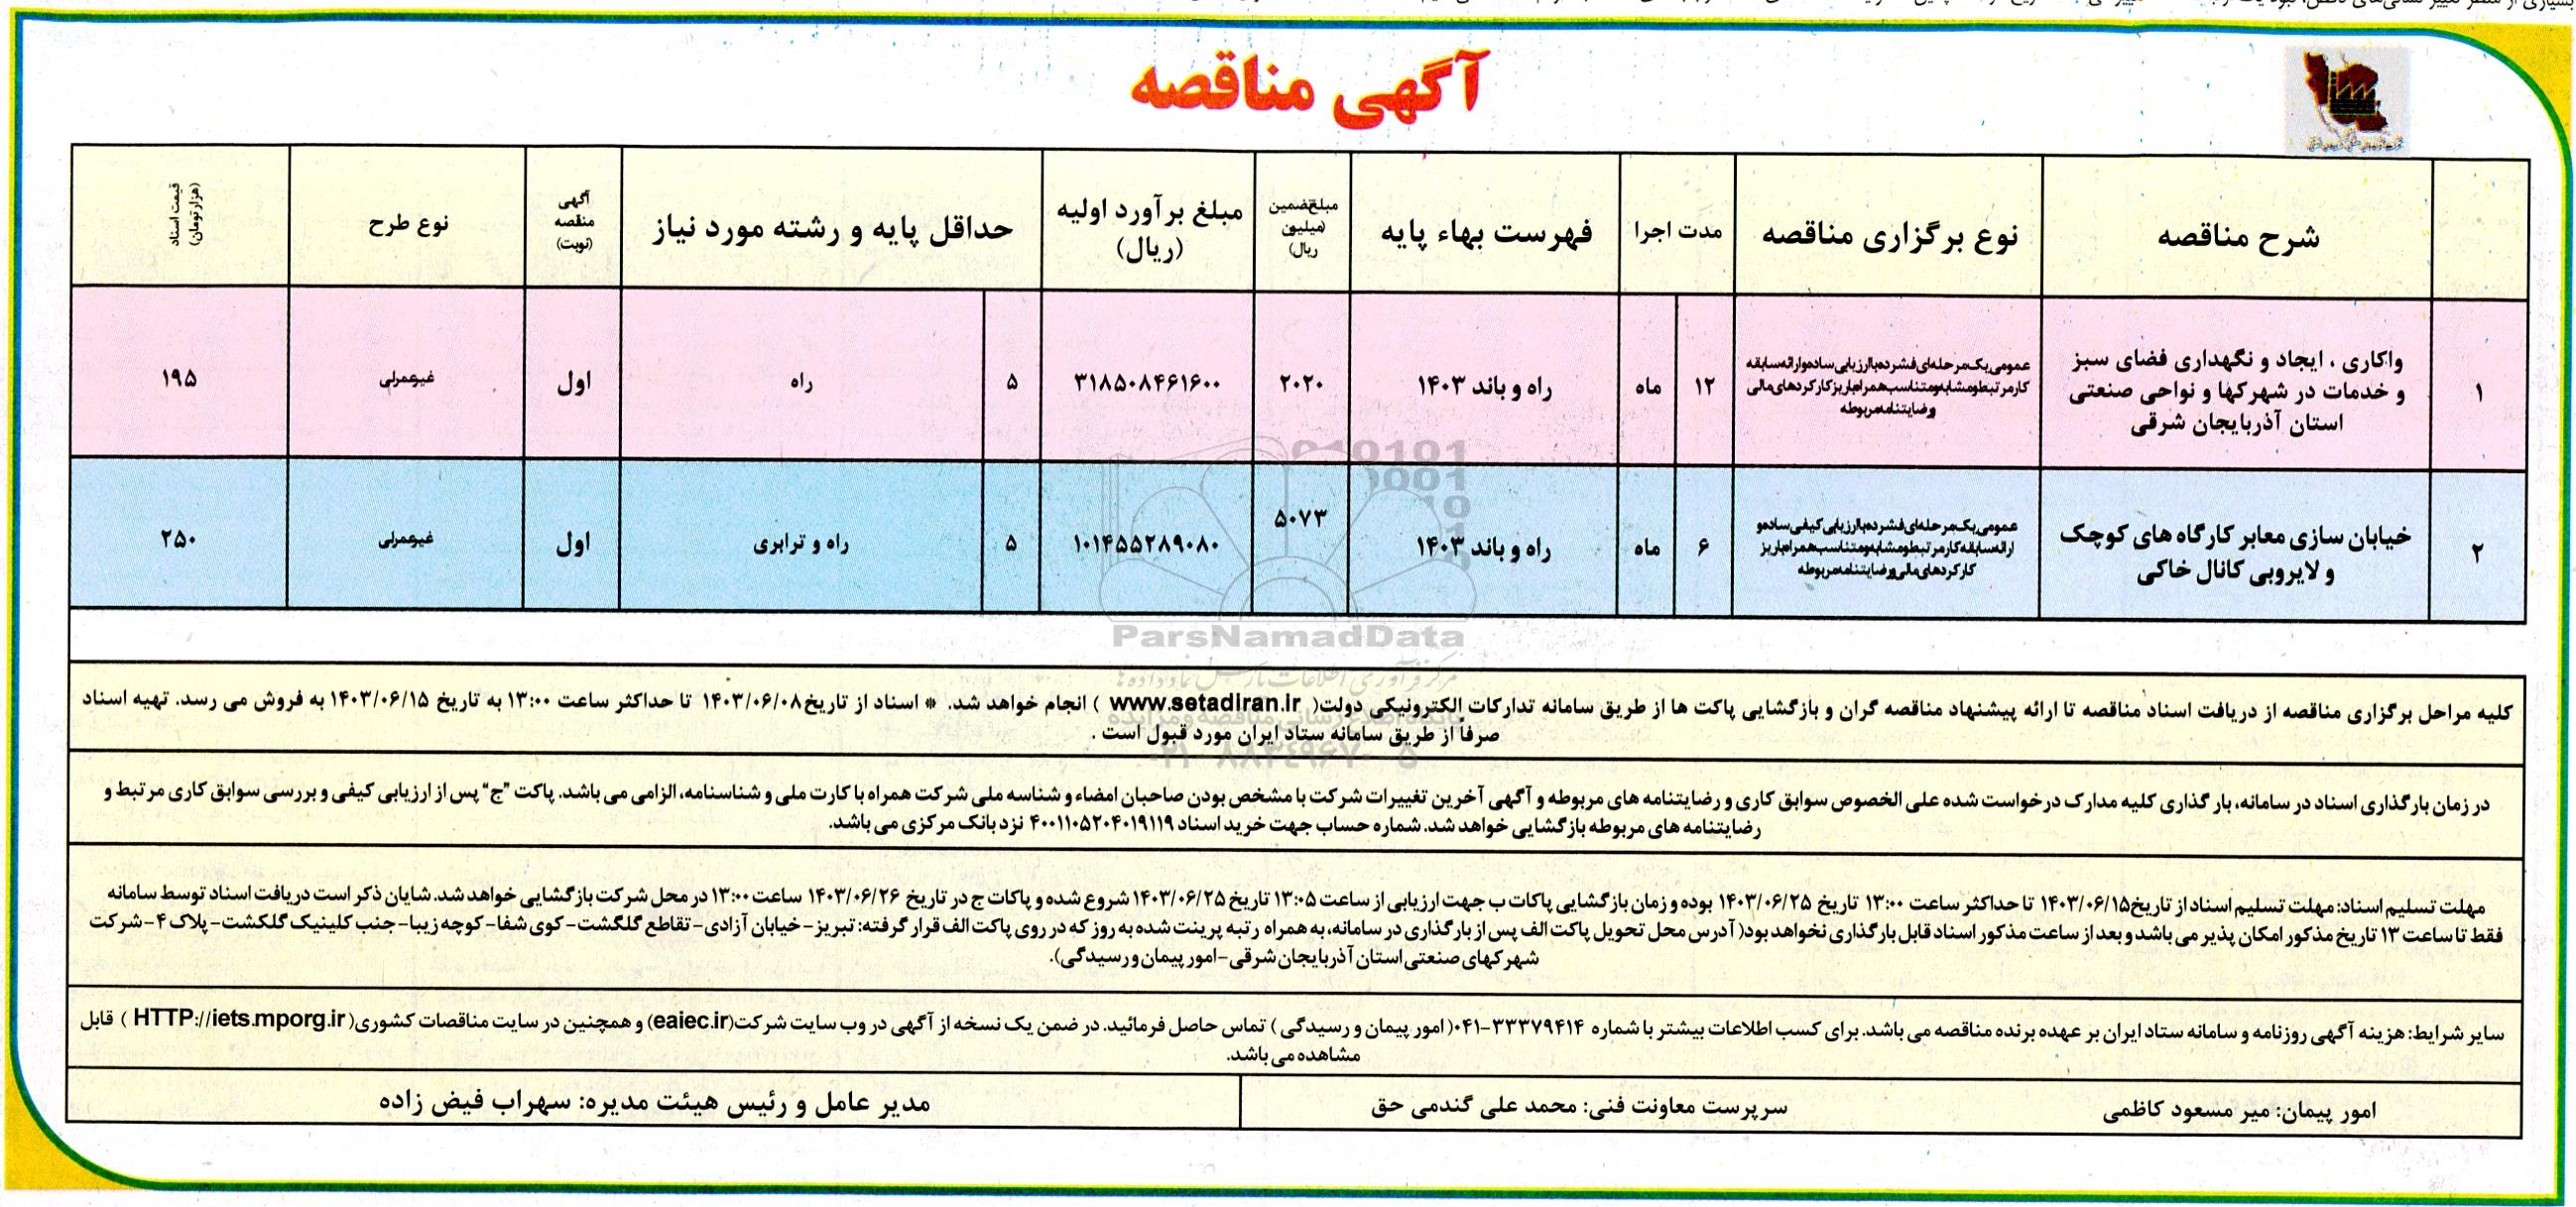 آگهی مناقصه
شرح مناقصه
نوع برگزاری مناقصه
مدت اجرا
فهرست بهاء پایه
مبلغ تضمین
(میلیون
ریال)
مبلغ برآورد اولیه
(ریال)
حداقل پایه و رشته مورد نیاز
آگهی
مناقصه
(نوبت)
نوع طرح
قیمت اسناد
(هزار تومان)
۱
واکاری ، ایجاد و نگهداری فضای سبز
و خدمات در شهرکها و نواحی صنعتی
استان آذربایجان شرقی
عمومی یک مرحله‌ای فشرده با ارزیابی ساده و ارائه سابقه
کار مرتبط و مشابه و متناسب همراه با ریز کارکردهای مالی
و رضایتنامه مربوطه
۱۲
ماه
راه و باند ۱۴۰۳
۲۰۲۰
۳۱۸۵۰۸۴۶۱۶۰۰
۵
راه
اول
غیرعمرانی
۱۹۵
۲
خیابان سازی معابر کارگاه های کوچک
و لایروبی کانال خاکی
عمومی یک مرحله‌ای فشرده با ارزیابی کیفی ساده و
ارائه سابقه کار مرتبط و مشابه و متناسب همراه با ریز
کارکردهای مالی و رضایتنامه مربوطه
۶
ماه
راه و باند ۱۴۰۳
۵۰۷۳
۱۰۱۴۵۵۲۸۹۰۸۰
۵
راه و ترابری
اول
غیرعمرانی
۲۵۰
ParsNamadData
کلیه مراحل برگزاری مناقصه از دریافت اسناد مناقصه تا ارائه پیشنهاد مناقصه گران و بازگشایی پاکت ها از طریق سامانه تدارکات الکترونیکی دولت( www.setadiran.ir ) انجام خواهد شد. * اسناد از تاریخ۱۴۰۳/۰۶/۰۸ تا حداکثر ساعت ۱۳:۰۰ به تاریخ ۱۴۰۳/۰۶/۱۵ به فروش می رسد. تهیه اسناد
صرفاً از طریق سامانه ستاد ایران مورد قبول است .
در زمان بارگذاری اسناد در سامانه، بارگذاری کلیه مدارک درخواست شده علی الخصوص سوابق کاری و رضایتنامه های مربوطه و آگهی آخرین تغییرات شرکت با مشخص بودن صاحبان امضاء و شناسه ملی شرکت همراه با کارت ملی و شناسنامه، الزامی می باشد. پاکت "ج" پس از ارزیابی کیفی و بررسی سوابق کاری مرتبط و
رضایتنامه های مربوطه بازگشایی خواهد شد. شماره حساب جهت خرید اسناد ۴۰۰۱۱۰۵۲۰۴۰۱۹۱۱۹ نزد بانک مرکزی می باشد.
مهلت تسلیم اسناد: مهلت تسلیم اسناد از تاریخ۱۴۰۳/۰۶/۱۵ تا حداکثر ساعت ۱۳:۰۰ تاریخ ۱۴۰۳/۰۶/۲۵ بوده و زمان بازگشایی پاکات ب جهت ارزیابی از ساعت ۱۳:۰۵ تاریخ ۱۴۰۳/۰۶/۲۵ شروع شده و پاکات ج در تاریخ ۱۴۰۳/۰۶/۲۶ ساعت ۱۳:۰۰ در محل شرکت بازگشایی خواهد شد. شایان ذکر است دریافت اسناد توسط سامانه
فقط تا ساعت ۱۳ تاریخ مذکور امکان پذیر می باشد و بعد از ساعت مذکور اسناد قابل بارگذاری نخواهد بود( آدرس محل تحویل پاکت الف پس از بارگذاری در سامانه، به همراه رتبه پرینت شده به روز که در روی پاکت الف قرار گرفته: تبریز- خیابان آزادی- تقاطع گلگشت- کوی شفا- کوچه زیبا- جنب کلینیک گلگشت- پلاک ۴- شرکت
شهرکهای صنعتی استان آذربایجان شرقی- امور پیمان و رسیدگی).
سایر شرایط: هزینه آگهی روزنامه و سامانه ستاد ایران بر عهده برنده مناقصه می باشد. برای کسب اطلاعات بیشتر با شماره ۳۳۳۷۹۴۱۴-۰۴۱( امور پیمان و رسیدگی ) تماس حاصل فرمائید. در ضمن یک نسخه از آگهی در وب سایت شرکت(eaiec.ir) و همچنین در سایت مناقصات کشوری( HTTP://iets.mporg.ir ) قابل
مشاهده می باشد.
امور پیمان: میر مسعود کاظمی
سرپرست معاونت فنی: محمد علی گندمی حق
مدیر عامل و رئیس هیئت مدیره: سهراب فیض زاده